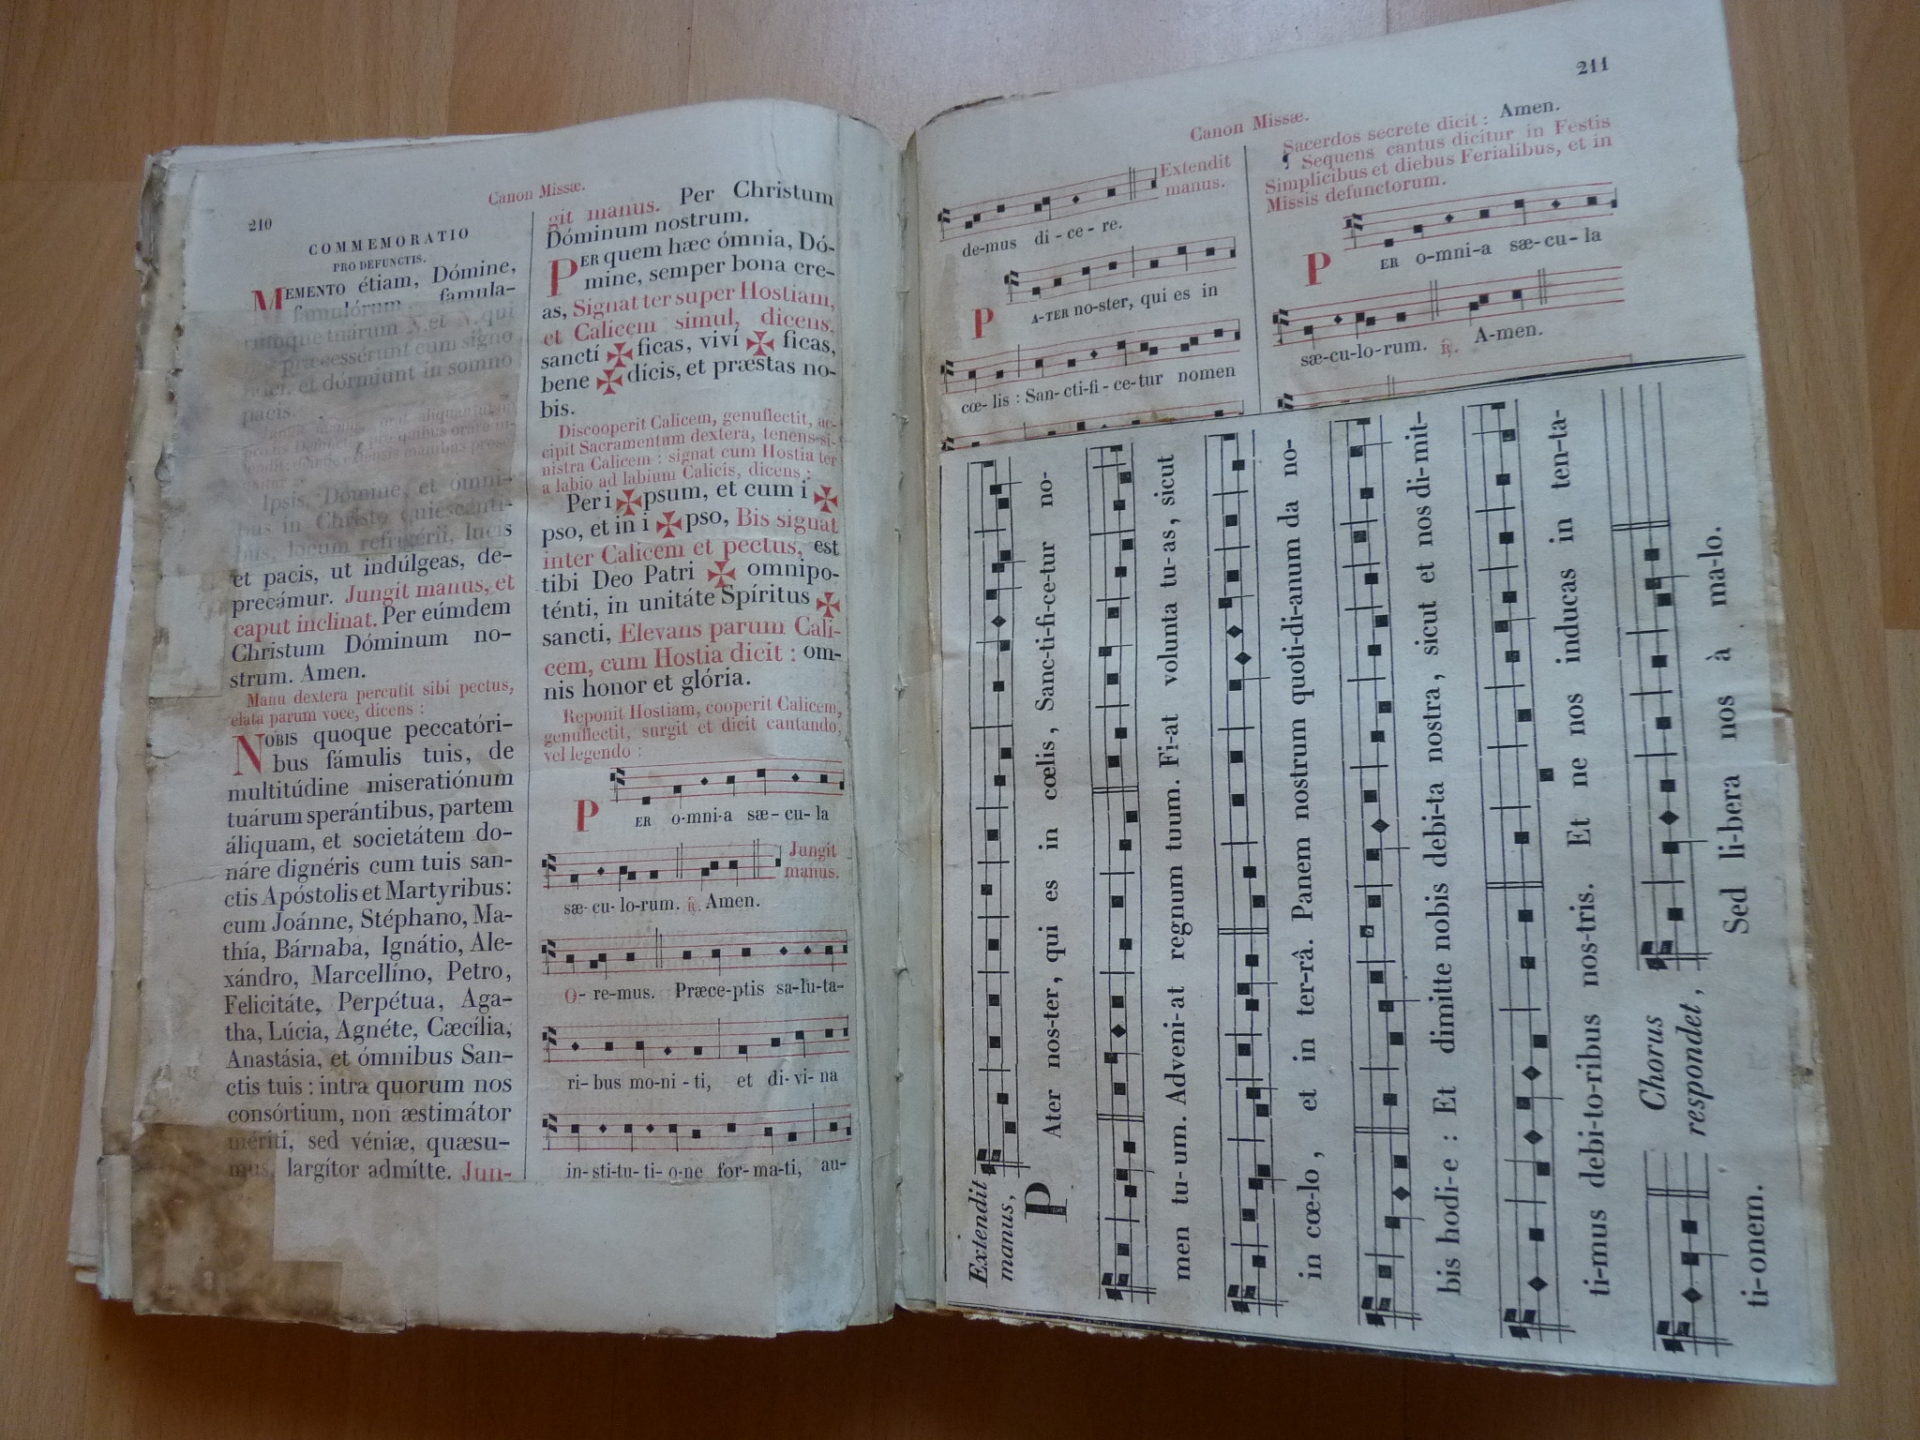 210
Canon Missæ.
COMMEMORATIO
PRO DEFUNCTIS.
MEMENTO étiam, Dómine,
famulórum famula-
rúmque tuárum N. et N. qui
præcessérunt cum signo
et dórmiunt in somno
pacis.
Ipsis, Dómine, et ómni-
bus in Christo quiescénti-
bus, locum refrigérii, lucis
et pacis, ut indúlgeas, de-
precámur. Jungit manus, et
caput inclinat. Per eúmdem
Christum Dóminum no-
strum. Amen.
Manu dextera percutit sibi pectus,
elata parum voce, dicens :
NOBIS quoque peccatóri-
bus fámulis tuis, de
multitúdine miseratiónum
tuárum sperántibus, partem
áliquam, et societátem do-
náre dignéris cum tuis san-
ctis Apóstolis et Martyribus:
cum Joánne, Stéphano, Ma-
thía, Bárnaba, Ignátio, Ale-
xándro, Marcellíno, Petro,
Felicitáte, Perpétua, Aga-
tha, Lúcia, Agnéte, Cæcília,
Anastásia, et ómnibus San-
ctis tuis : intra quorum nos
consórtium, non æstimátor
mériti, sed véniæ, quæsu-
mus, largítor admítte. Jun-
git manus. Per Christum
Dóminum nostrum.
PER quem hæc ómnia, Dó-
mine, semper bona cre-
as, Signat ter super Hostiam,
et Calicem simul, dicens,
sanctí ✠ ficas, viví ✠ ficas,
bene ✠ dícis, et præstas no-
bis.
Discooperit Calicem, genuflectit, ac-
cipit Sacramentum dextera, tenens si-
nistra Calicem : signat cum Hostia ter
a labio ad labium Calicis, dicens :
Per i ✠ psum, et cum i ✠
pso, et in i ✠ pso, Bis signat
inter Calicem et pectus, est
tibi Deo Patri ✠ omnipo-
ténti, in unitáte Spíritus ✠
sancti, Elevans parum Cali-
cem, cum Hostia dicit : om-
nis honor et glória.
Reponit Hostiam, cooperit Calicem,
genuflectit, surgit et dicit cantando,
vel legendo :
PER o-mni-a sæ-cu-la
Jungit
manus.
sæ-cu-lo-rum. ℟. Amen.
O-re-mus. Præce-ptis sa-lu-ta-
ri-bus mo-ni-ti, et di-vi-na
in-sti-tu-ti-o-ne for-ma-ti, au-
211
Canon Missæ.
Extendit
manus.
de-mus di-ce-re.
PA-TER no-ster, qui es in
cœ-lis : San-cti-fi-ce-tur nomen
Sacerdos secrete dicit : Amen.
¶ Sequens cantus dicitur in Festis
Simplicibus et diebus Ferialibus, et in
Missis defunctorum.
PER o-mni-a sæ-cu-la
sæ-cu-lo-rum. ℟. A-men.
Extendit
manus,
PAter nos-ter, qui es in cœlis, Sanc-ti-fi-ce-tur no-
men tu-um. Adveni-at regnum tuum. Fi-at volunta tu-as, sicut
in cœ-lo, et in ter-râ. Panem nostrum quoti-di-anum da no-
bis hodi-e : Et dimitte nobis debi-ta nostra, sicut et nos di-mit-
ti-mus debi-to-ribus nos-tris. Et ne nos inducas in ten-ta-
ti-onem.
Chorus
respondet,
Sed li-bera nos à ma-lo.